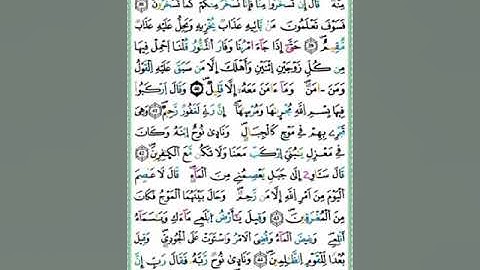 مِنْهُ ۚ قَالَ اِنْ تَسْخَرُوْا مِنَّا فَاِنَّا نَسْخَرُ مِنْكُمْ كَمَا تَسْخَرُوْنَ ۝٣٨
فَسَوْفَ تَعْلَمُوْنَ ۙ مَنْ يَّاْتِيْهِ عَذَابٌ يُّخْزِيْهِ وَيَحِلُّ عَلَيْهِ عَذَابٌ
مُّقِيْمٌ ۝٣٩ حَتّٰٓى اِذَا جَآءَ اَمْرُنَا وَفَارَ التَّنُّوْرُ ۙ قُلْنَا احْمِلْ فِيْهَا
مِنْ كُلٍّ زَوْجَيْنِ اثْنَيْنِ وَاَهْلَكَ اِلَّا مَنْ سَبَقَ عَلَيْهِ الْقَوْلُ
وَمَنْ اٰمَنَ ۗ وَمَآ اٰمَنَ مَعَهٗٓ اِلَّا قَلِيْلٌ ۝٤٠ وَقَالَ ارْكَبُوْا
فِيْهَا بِسْمِ اللّٰهِ مَجْرٖىهَا وَمُرْسٰىهَا ۗ اِنَّ رَبِّيْ لَغَفُوْرٌ رَّحِيْمٌ ۝٤١ وَهِيَ
تَجْرِيْ بِهِمْ فِيْ مَوْجٍ كَالْجِبَالِ ۗ وَنَادٰى نُوْحُ ابْنَهٗ وَكَانَ
فِيْ مَعْزِلٍ يّٰبُنَيَّ ارْكَبْ مَّعَنَا وَلَا تَكُنْ مَّعَ الْكٰفِرِيْنَ ۝٤٢
قَالَ سَاٰوِيْٓ اِلٰى جَبَلٍ يَّعْصِمُنِيْ مِنَ الْمَآءِ ۗ قَالَ لَا عَاصِمَ
الْيَوْمَ مِنْ اَمْرِ اللّٰهِ اِلَّا مَنْ رَّحِمَ ۚ وَحَالَ بَيْنَهُمَا الْمَوْجُ فَكَانَ
مِنَ الْمُغْرَقِيْنَ ۝٤٣ وَقِيْلَ يٰٓاَرْضُ ابْلَعِيْ مَآءَكِ وَيٰسَمَآءُ
اَقْلِعِيْ وَغِيْضَ الْمَآءُ وَقُضِيَ الْاَمْرُ وَاسْتَوَتْ عَلَى الْجُوْدِيِّ وَقِيْلَ
بُعْدًا لِّلْقَوْمِ الظّٰلِمِيْنَ ۝٤٤ وَنَادٰى نُوْحٌ رَّبَّهٗ فَقَالَ رَبِّ اِنَّ